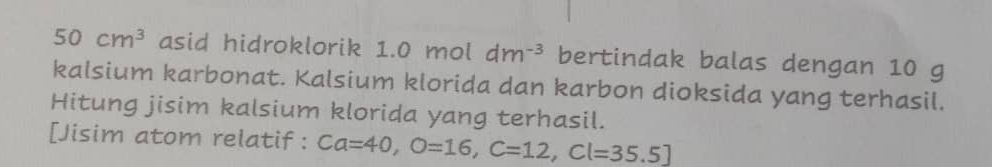 50 cm³ asid hidroklorik 1.0 mol dm⁻³ bertindak balas dengan 10 g
kalsium karbonat. Kalsium klorida dan karbon dioksida yang terhasil.
Hitung jisim kalsium klorida yang terhasil.
[Jisim atom relatif : Ca=40, O=16, C=12, Cl=35.5]